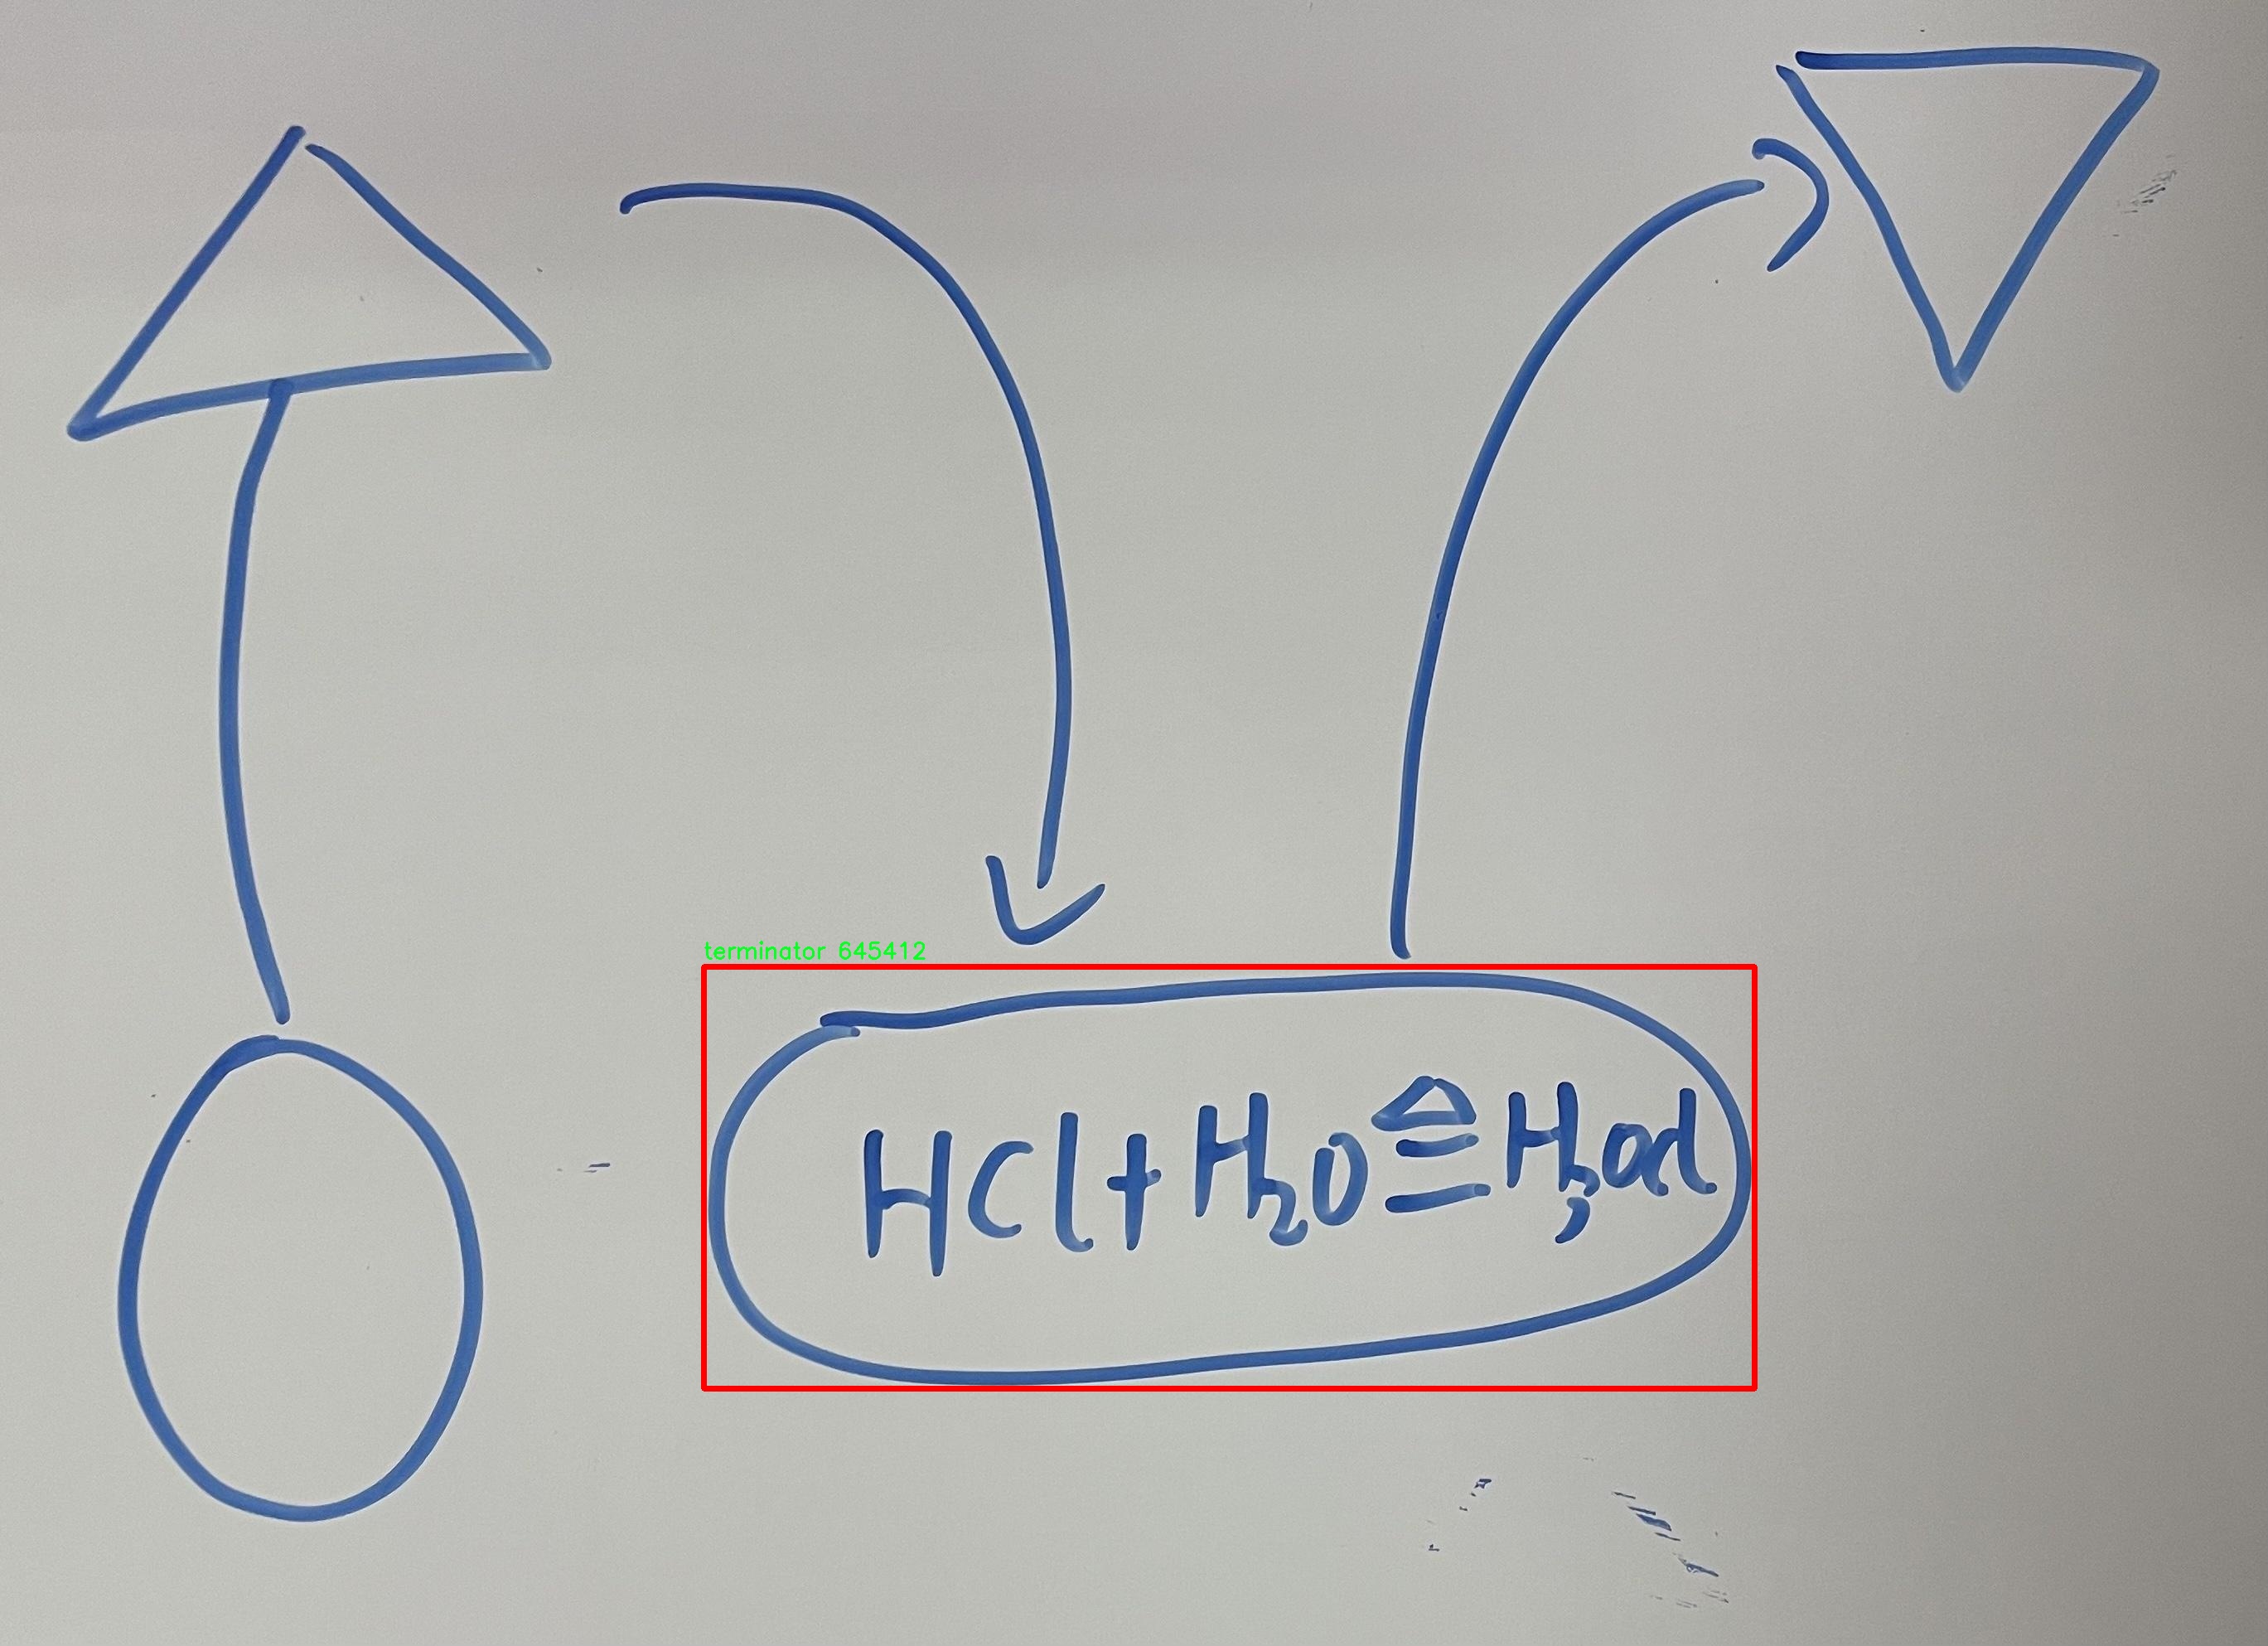 terminator 645412
HCl+H₂O≜H₃OCl